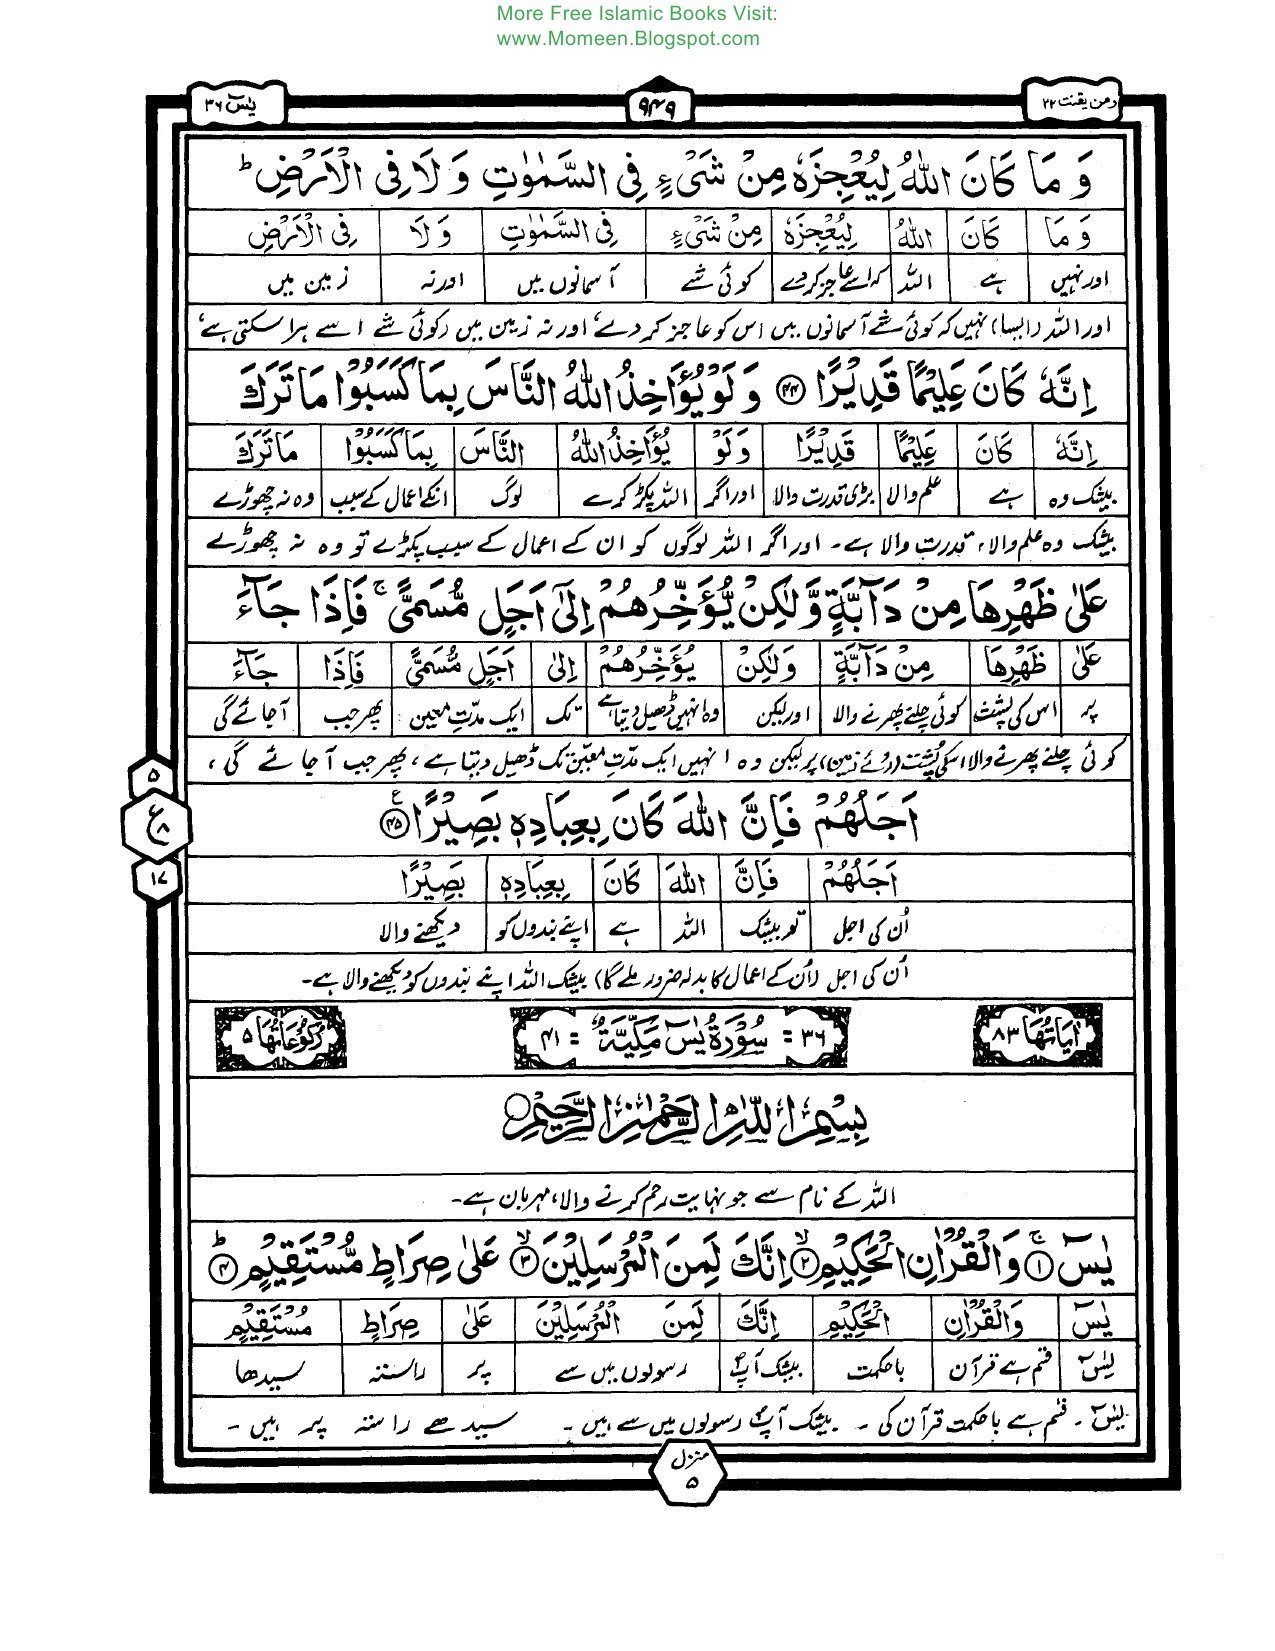 More Free Islamic Books Visit:
www.Momeen.Blogspot.com
ومن یقنت ۲۲ ۹۴۹ یٰسٓ ۳۶
وَ مَا كَانَ اللّٰهُ لِیُعْجِزَهٗ مِنْ شَیْءٍ فِی السَّمٰوٰتِ وَ لَا فِی الْاَرْضِ ؕ
وَ مَا كَانَ اللّٰهُ لِیُعْجِزَهٗ مِنْ شَیْءٍ فِی السَّمٰوٰتِ وَ لَا فِی الْاَرْضِ
اور نہیں ہے اللہ کہ اسے عاجز کر دے کوئی شے آسمانوں میں اور نہ زمین میں
اور اللہ (ایسا) نہیں کہ کوئی شے آسمانوں میں اس کو عاجز کر دے، اور نہ زمین میں (کوئی شے اسے ہرا سکتی ہے،
اِنَّهٗ كَانَ عَلِیْمًا قَدِیْرًا ﴿۴۴﴾ وَ لَوْ یُؤَاخِذُ اللّٰهُ النَّاسَ بِمَا كَسَبُوْا مَا تَرَكَ
اِنَّهٗ كَانَ عَلِیْمًا قَدِیْرًا وَلَوْ یُؤَاخِذُ اللّٰهُ النَّاسَ بِمَا كَسَبُوْا مَا تَرَكَ
بیشک وہ ہے علم والا بڑی قدرت والا اور اگر اللہ پکڑ کرے لوگ انکے اعمال کے سبب وہ نہ چھوڑے
بیشک وہ علم والا، قدرت والا ہے۔ اور اگر اللہ لوگوں کو ان کے اعمال کے سبب پکڑے تو وہ نہ چھوڑے
عَلٰی ظَهْرِهَا مِنْ دَآبَّةٍ وَّ لٰكِنْ یُّؤَخِّرُهُمْ اِلٰۤی اَجَلٍ مُّسَمًّی ۚ فَاِذَا جَآءَ
عَلٰی ظَهْرِهَا مِنْ دَآبَّةٍ وَلٰكِنْ یُؤَخِّرُهُمْ اِلٰی اَجَلٍ مُّسَمًّی فَاِذَا جَآءَ
پر اس کی پشت کوئی چلنے پھرنے والا اور لیکن وہ انہیں ڈھیل دیتا ہے تک ایک مدّتِ معین پھر جب آجائے گی
کوئی چلنے پھرنے والا اسکی پُشت (روئے زمین) پر لیکن وہ انہیں ایک مدّتِ معیّن تک ڈھیل دیتا ہے، پھر جب آ جائے گی،
۵
ع
۸
۱۷
اَجَلُهُمْ فَاِنَّ اللّٰهَ كَانَ بِعِبَادِهٖ بَصِیْرًا ﴿۴۵﴾ ع
اَجَلُهُمْ فَاِنَّ اللّٰهَ كَانَ بِعِبَادِهٖ بَصِیْرًا
اُن کی اجل تو بیشک اللہ ہے اپنے بندوں کو دیکھنے والا
اُن کی اجل (اُن کے اعمال کا بدلہ ضرور ملے گا) بیشک اللہ اپنے بندوں کو دیکھنے والا ہے۔
اٰیاتُهَا ۸۳ ۳۶ = سُوْرَةُ یٰسٓ مَكِّیَّةٌ = ۴۱ رُكُوْعَاتُهَا ۵
بِسْمِ اللّٰهِ الرَّحْمٰنِ الرَّحِیْمِ
اللہ کے نام سے جو نہایت رحم کرنے والا، مہربان ہے۔
یٰسٓ ۚ﴿۱﴾ وَ الْقُرْاٰنِ الْحَكِیْمِ ۙ﴿۲﴾ اِنَّكَ لَمِنَ الْمُرْسَلِیْنَ ۙ﴿۳﴾ عَلٰی صِرَاطٍ مُّسْتَقِیْمٍ ؕ﴿۴﴾
یٰسٓ وَالْقُرْاٰنِ الْحَكِیْمِ اِنَّكَ لَمِنَ الْمُرْسَلِیْنَ عَلٰی صِرَاطٍ مُسْتَقِیْمٍ
یٰسٓ قسم ہے قرآن باحکمت بیشک آپؐ رسولوں میں سے پر راستہ سیدھا
یٰسٓ۔ قسم ہے باحکمت قرآن کی۔ بیشک آپؐ رسولوں میں سے ہیں۔ سیدھے راستہ پر ہیں۔
منزل
۵